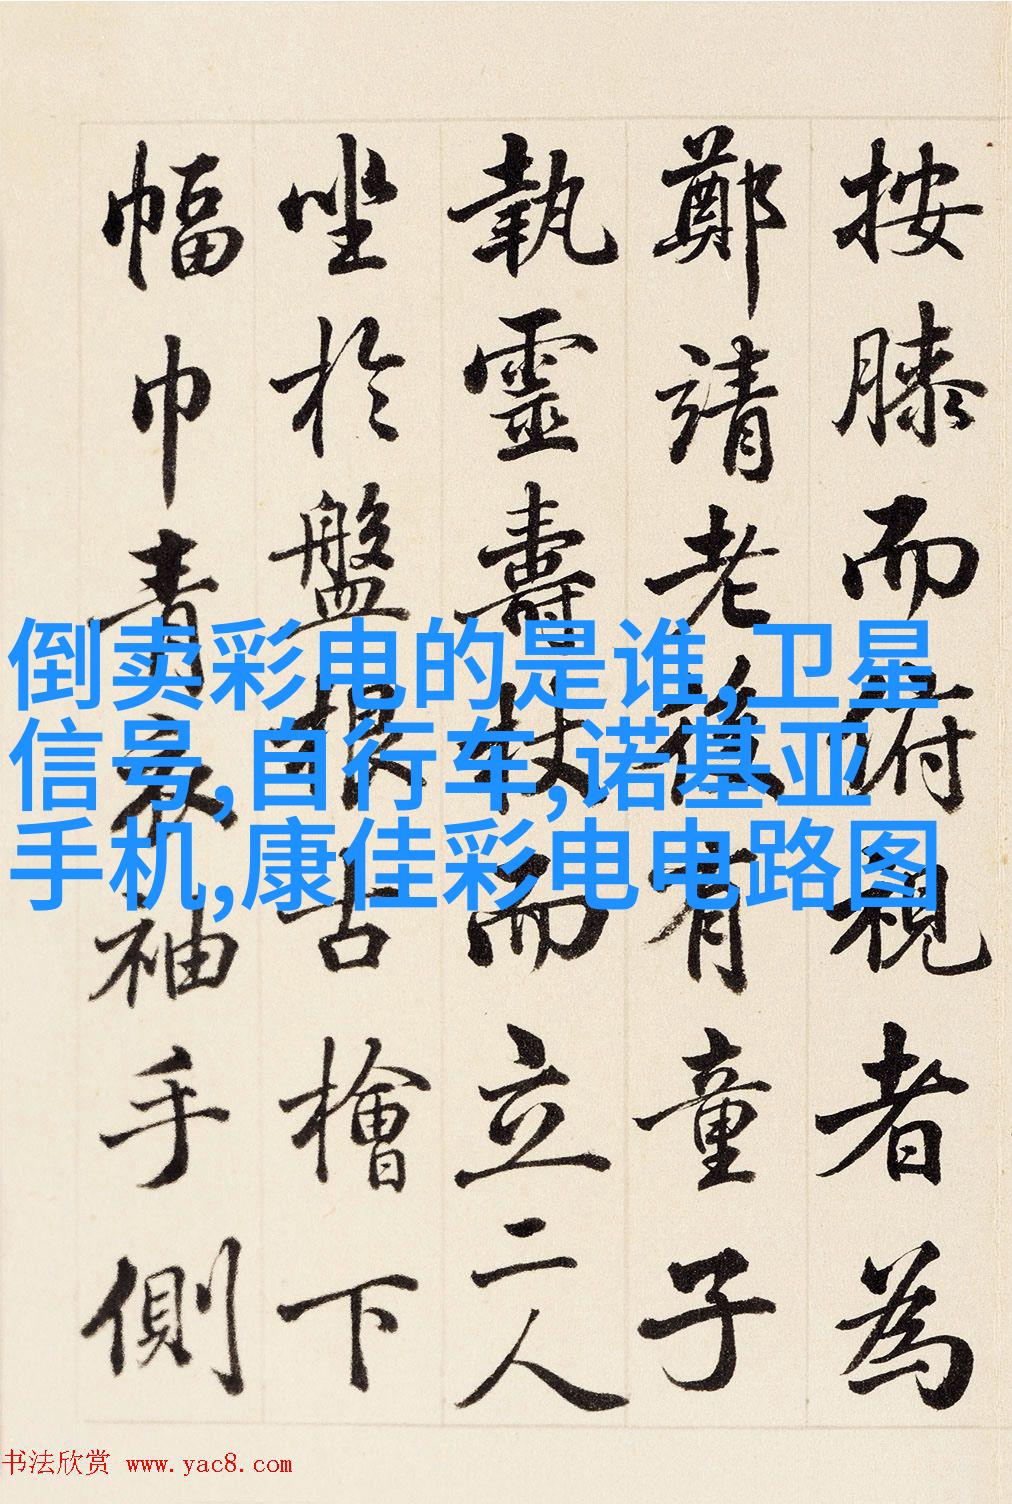 按膝而俯視者為
鄭靖老後有童子
執靈壽杖而立二人
坐於盤根古檜下
幅巾青衣袖手側
倒卖彩电的是谁,卫星
信号,自行车,诺基亚
手机,康佳彩电电路图
书法欣赏 www.yac8.com